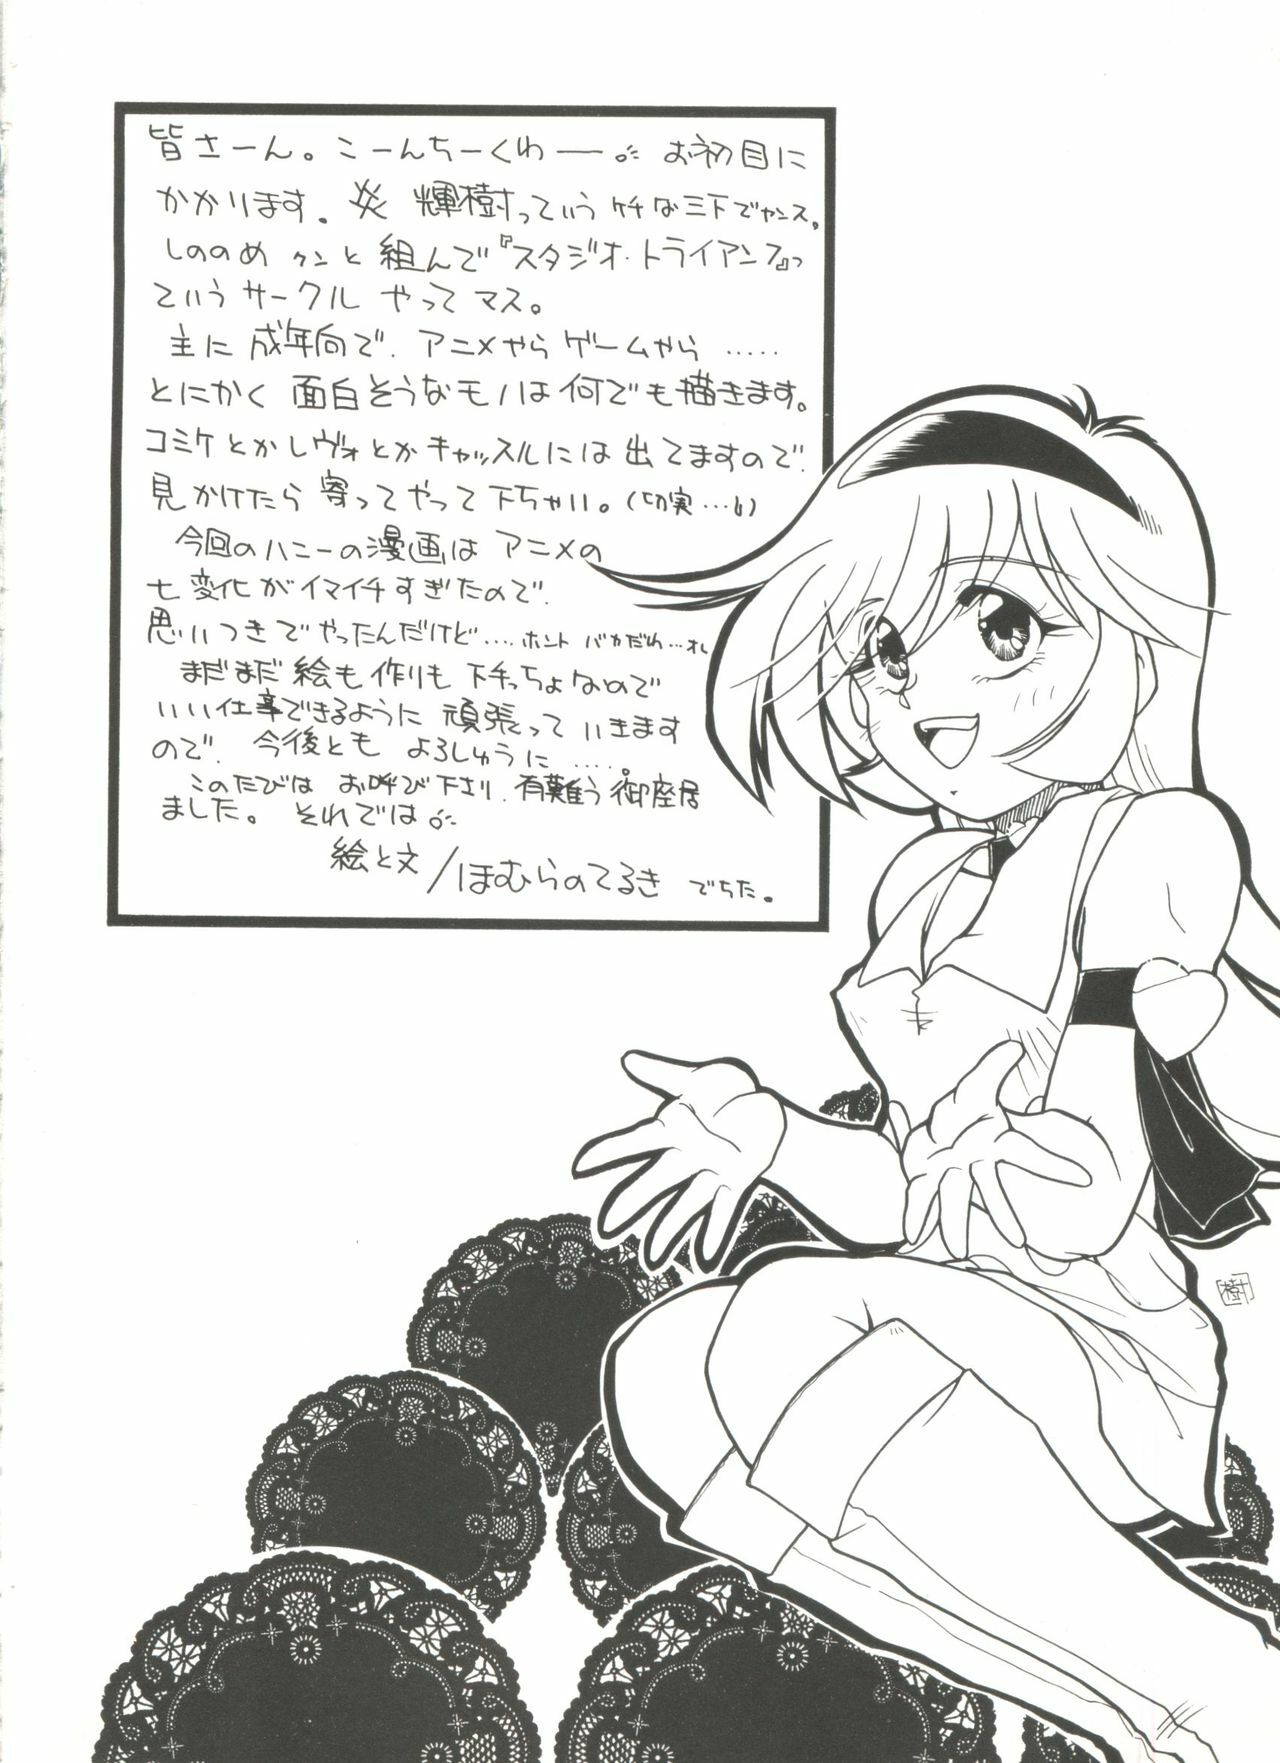 皆さーん。こーんちーくわー。お初目に
かかります。炎 輝樹っていうケチな三下でヤンス。
しののめ クンと組んで『スタジオ・トライアンフ』っ
ていうサークル やってマス。
主に成年向で、アニメやらゲームやら……
とにかく面白そうなモノは何でも描きます。
コミケとかレヴォとかキャッスルには出てますので、
見かけたら寄ってやって下ちゃい。(切実…!)
今回のハニーの漫画はアニメの
七変化がイマイチすぎたので、
思いつきでやったんだけど……ホント バカだね…オレ
まだまだ絵も作りも下手っちょなので
いい仕事できるように頑張っていきます
ので、今後とも よろしゅうに……。
このたびは お呼び下さり、有難う御座居
ました。それでは
絵と文/ほむらのてるき でちた。
樹